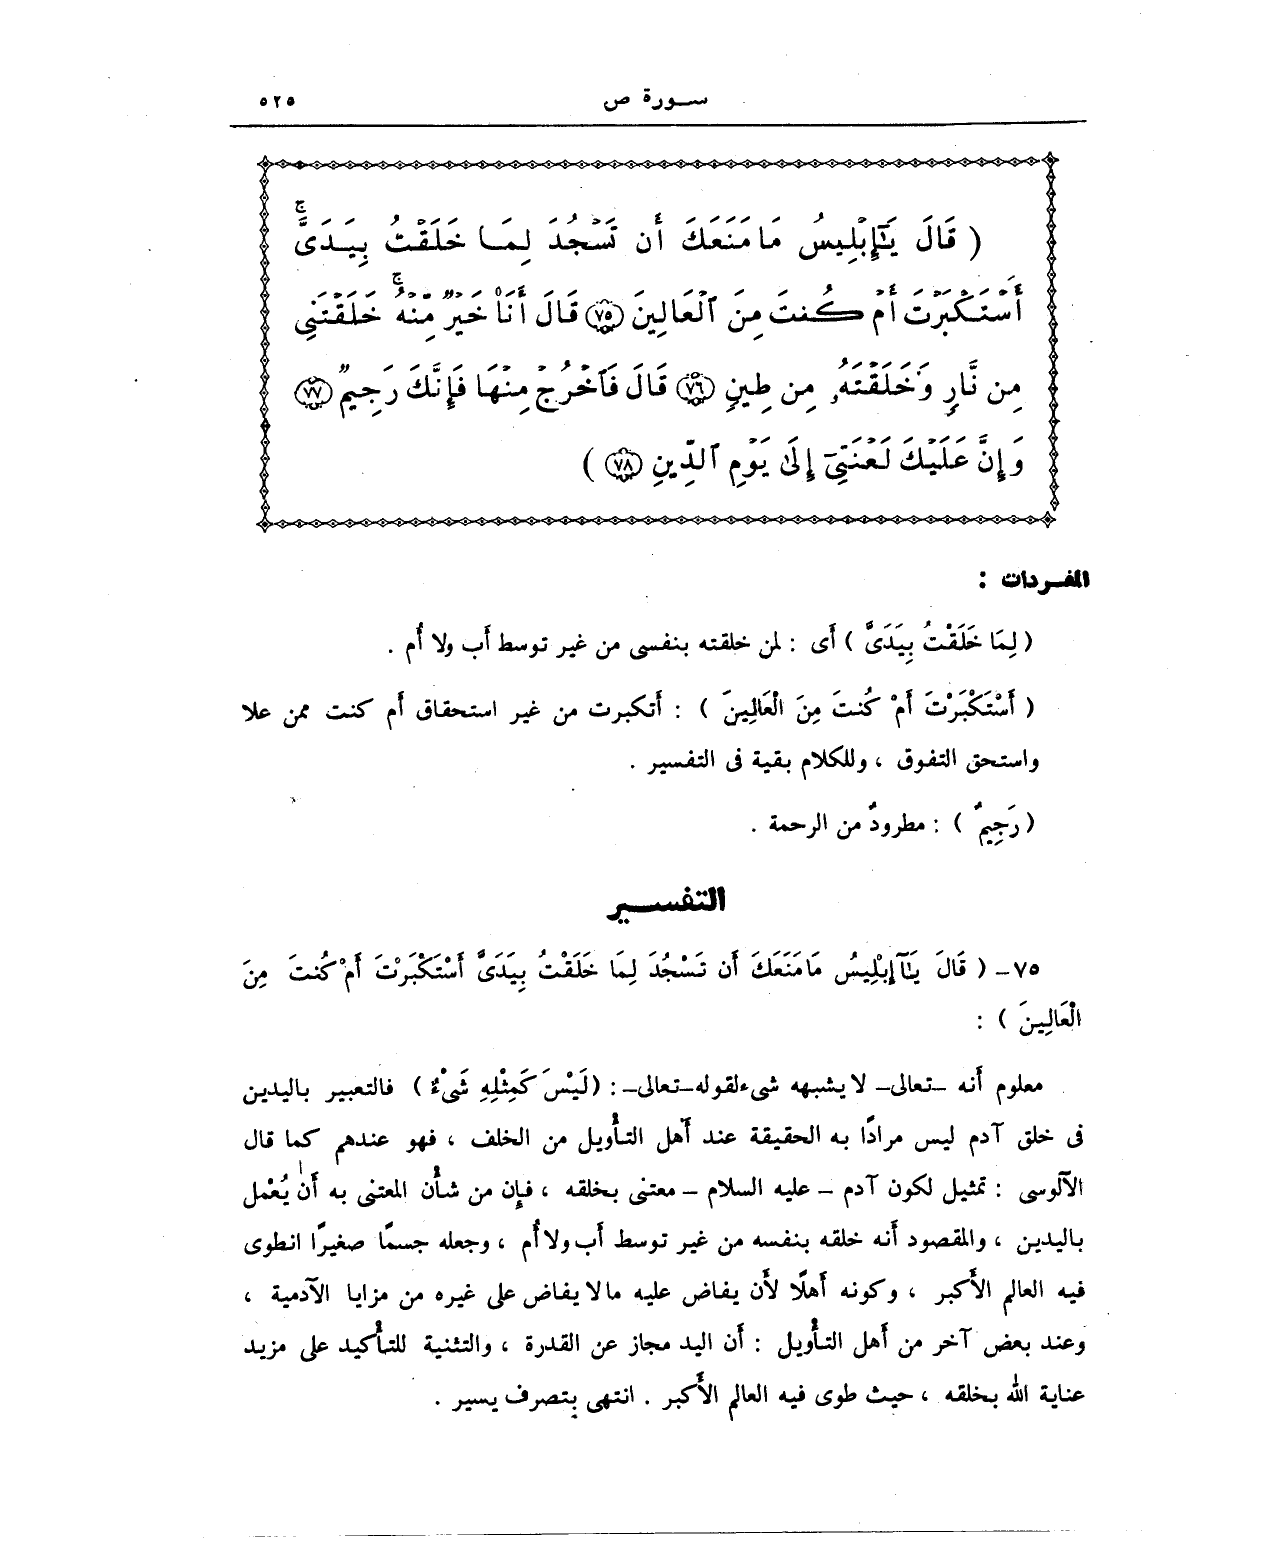 سورة ص ٥٢٥
( قَالَ يَٰٓإِبْلِيسُ مَا مَنَعَكَ أَن تَسْجُدَ لِمَا خَلَقْتُ بِيَدَىَّۖ
أَسْتَكْبَرْتَ أَمْ كُنتَ مِنَ ٱلْعَالِينَ ﴿٧٥﴾ قَالَ أَنَا۠ خَيْرٌ مِّنْهُۖ خَلَقْتَنِى
مِن نَّارٍ وَخَلَقْتَهُۥ مِن طِينٍ ﴿٧٦﴾ قَالَ فَٱخْرُجْ مِنْهَا فَإِنَّكَ رَجِيمٌ ﴿٧٧﴾
وَإِنَّ عَلَيْكَ لَعْنَتِىٓ إِلَىٰ يَوْمِ ٱلدِّينِ ﴿٧٨﴾ )
المفردات :
( لِمَا خَلَقْتُ بِيَدَىَّ ) أَى : لمن خلقته بنفسى من غير توسط أَب ولا أُم .
( أَسْتَكْبَرْتَ أَمْ كُنتَ مِنَ الْعَالِينَ ) : أَتكبرت من غير استحقاق أَم كنت ممن علا
واستحق التفوق ، وللكلام بقية فى التفسير .
( رَجِيمٌ ) : مطرودٌ من الرحمة .
التفسير
٧٥– ( قَالَ يَٰٓاإِبْلِيسُ مَا مَنَعَكَ أَن تَسْجُدَ لِمَا خَلَقْتُ بِيَدَىَّ أَسْتَكْبَرْتَ أَمْ كُنتَ مِنَ
الْعَالِينَ ) :
معلوم أَنه –تعالى– لا يشبهه شىء لقوله –تعالى– : ( لَيْسَ كَمِثْلِهِ شَىْءٌ ) فالتعبير باليدين
فى خلق آدم ليس مرادًا به الحقيقة عند أَهل التأْويل من الخلف ، فهو عندهم كما قال
الآلوسى : تمثيل لكون آدم – عليه السلام – معتنى بخلقه ، فإِن من شأْن المعتنى به أَن يُعْمل
باليدين ، والمقصود أَنه خلقه بنفسه من غير توسط أَب ولا أُم ، وجعله جسمًا صغيرًا انطوى
فيه العالم الأَكبر ، وكونه أَهلًا لأَن يفاض عليه مالا يفاض على غيره من مزايا الآدمية ،
وعند بعض آخر من أَهل التأْويل : أَن اليد مجاز عن القدرة ، والتثنية للتأْكيد على مزيد
عناية الله بخلقه ، حيث طوى فيه العالم الأَكبر . انتهى بتصرف يسير .